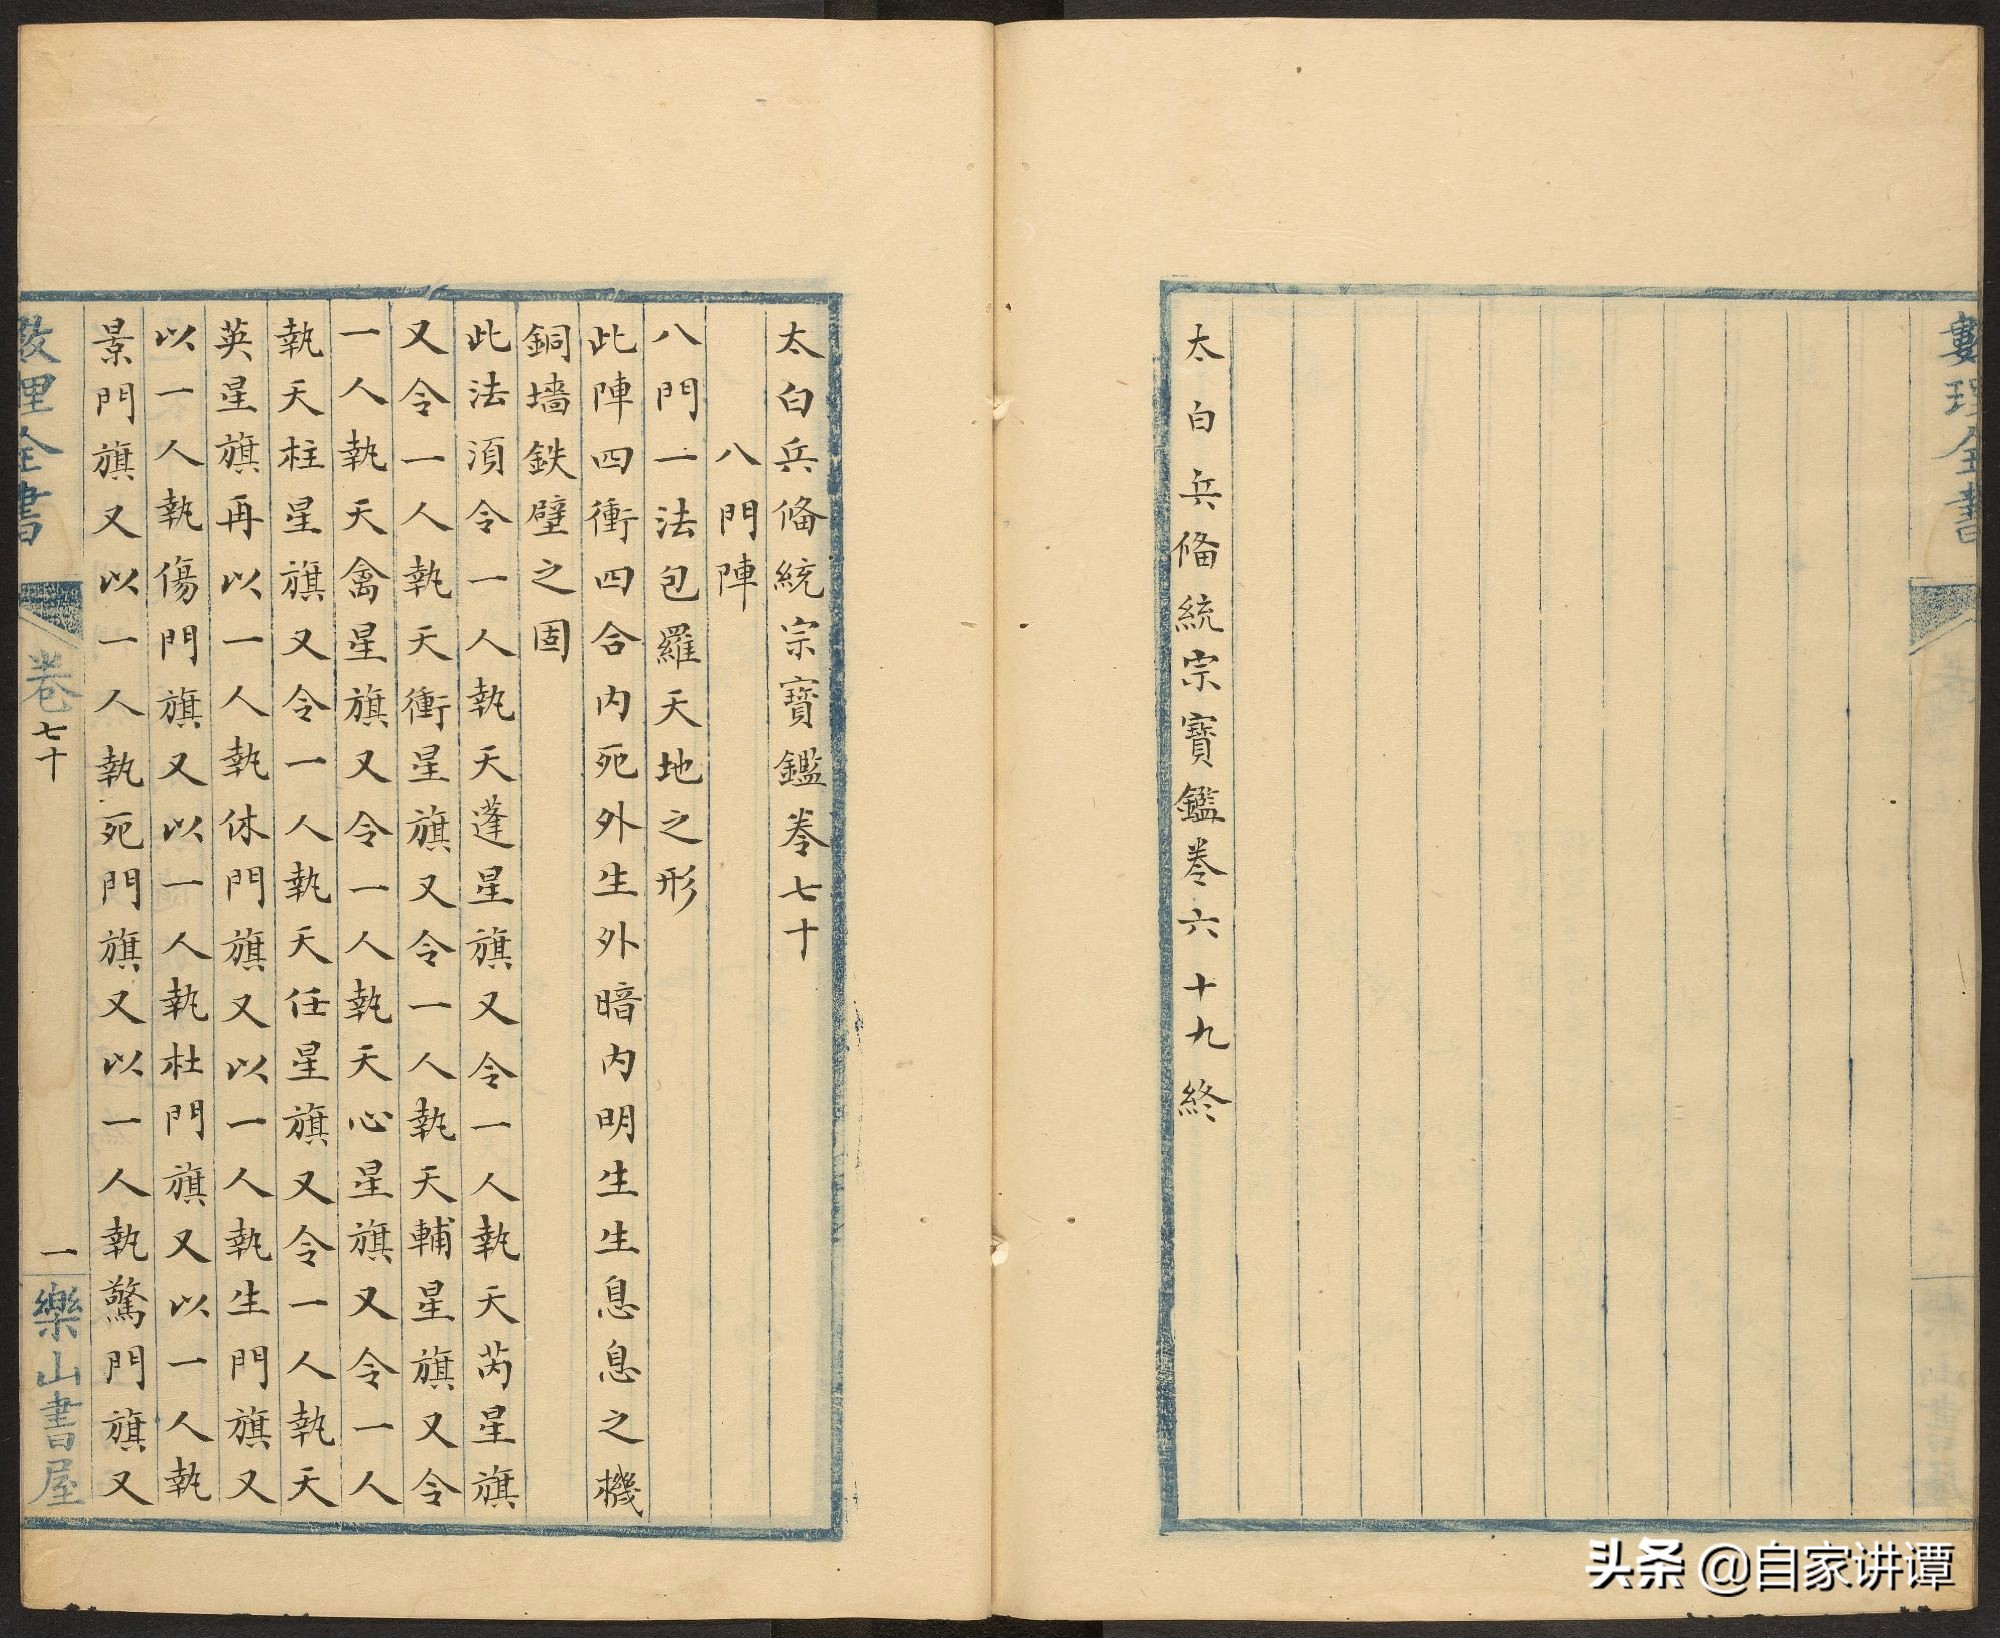 數理全書
太白兵偹統宗寳鑑卷六十九終
太白兵偹統宗寳鑑卷七十
八門陣
八門一法包羅天地之形
此陣四衝四合内死外生外暗内明生生息息之機
銅墻鉄壁之固
此法湏令一人執天蓬星旗又令一人執天芮星旗
又令一人執天衝星旗又令一人執天輔星旗又令
一人執天禽星旗又令一人執天心星旗又令一人
執天柱星旗又令一人執天任星旗又令一人執天
英星旗再以一人執休門旗又以一人執生門旗又
以一人執傷門旗又以一人執杜門旗又以一人執
景門旗又以一人執死門旗又以一人執驚門旗又
數理全書 卷七十 一 樂山書屋
头条 @自家讲谭